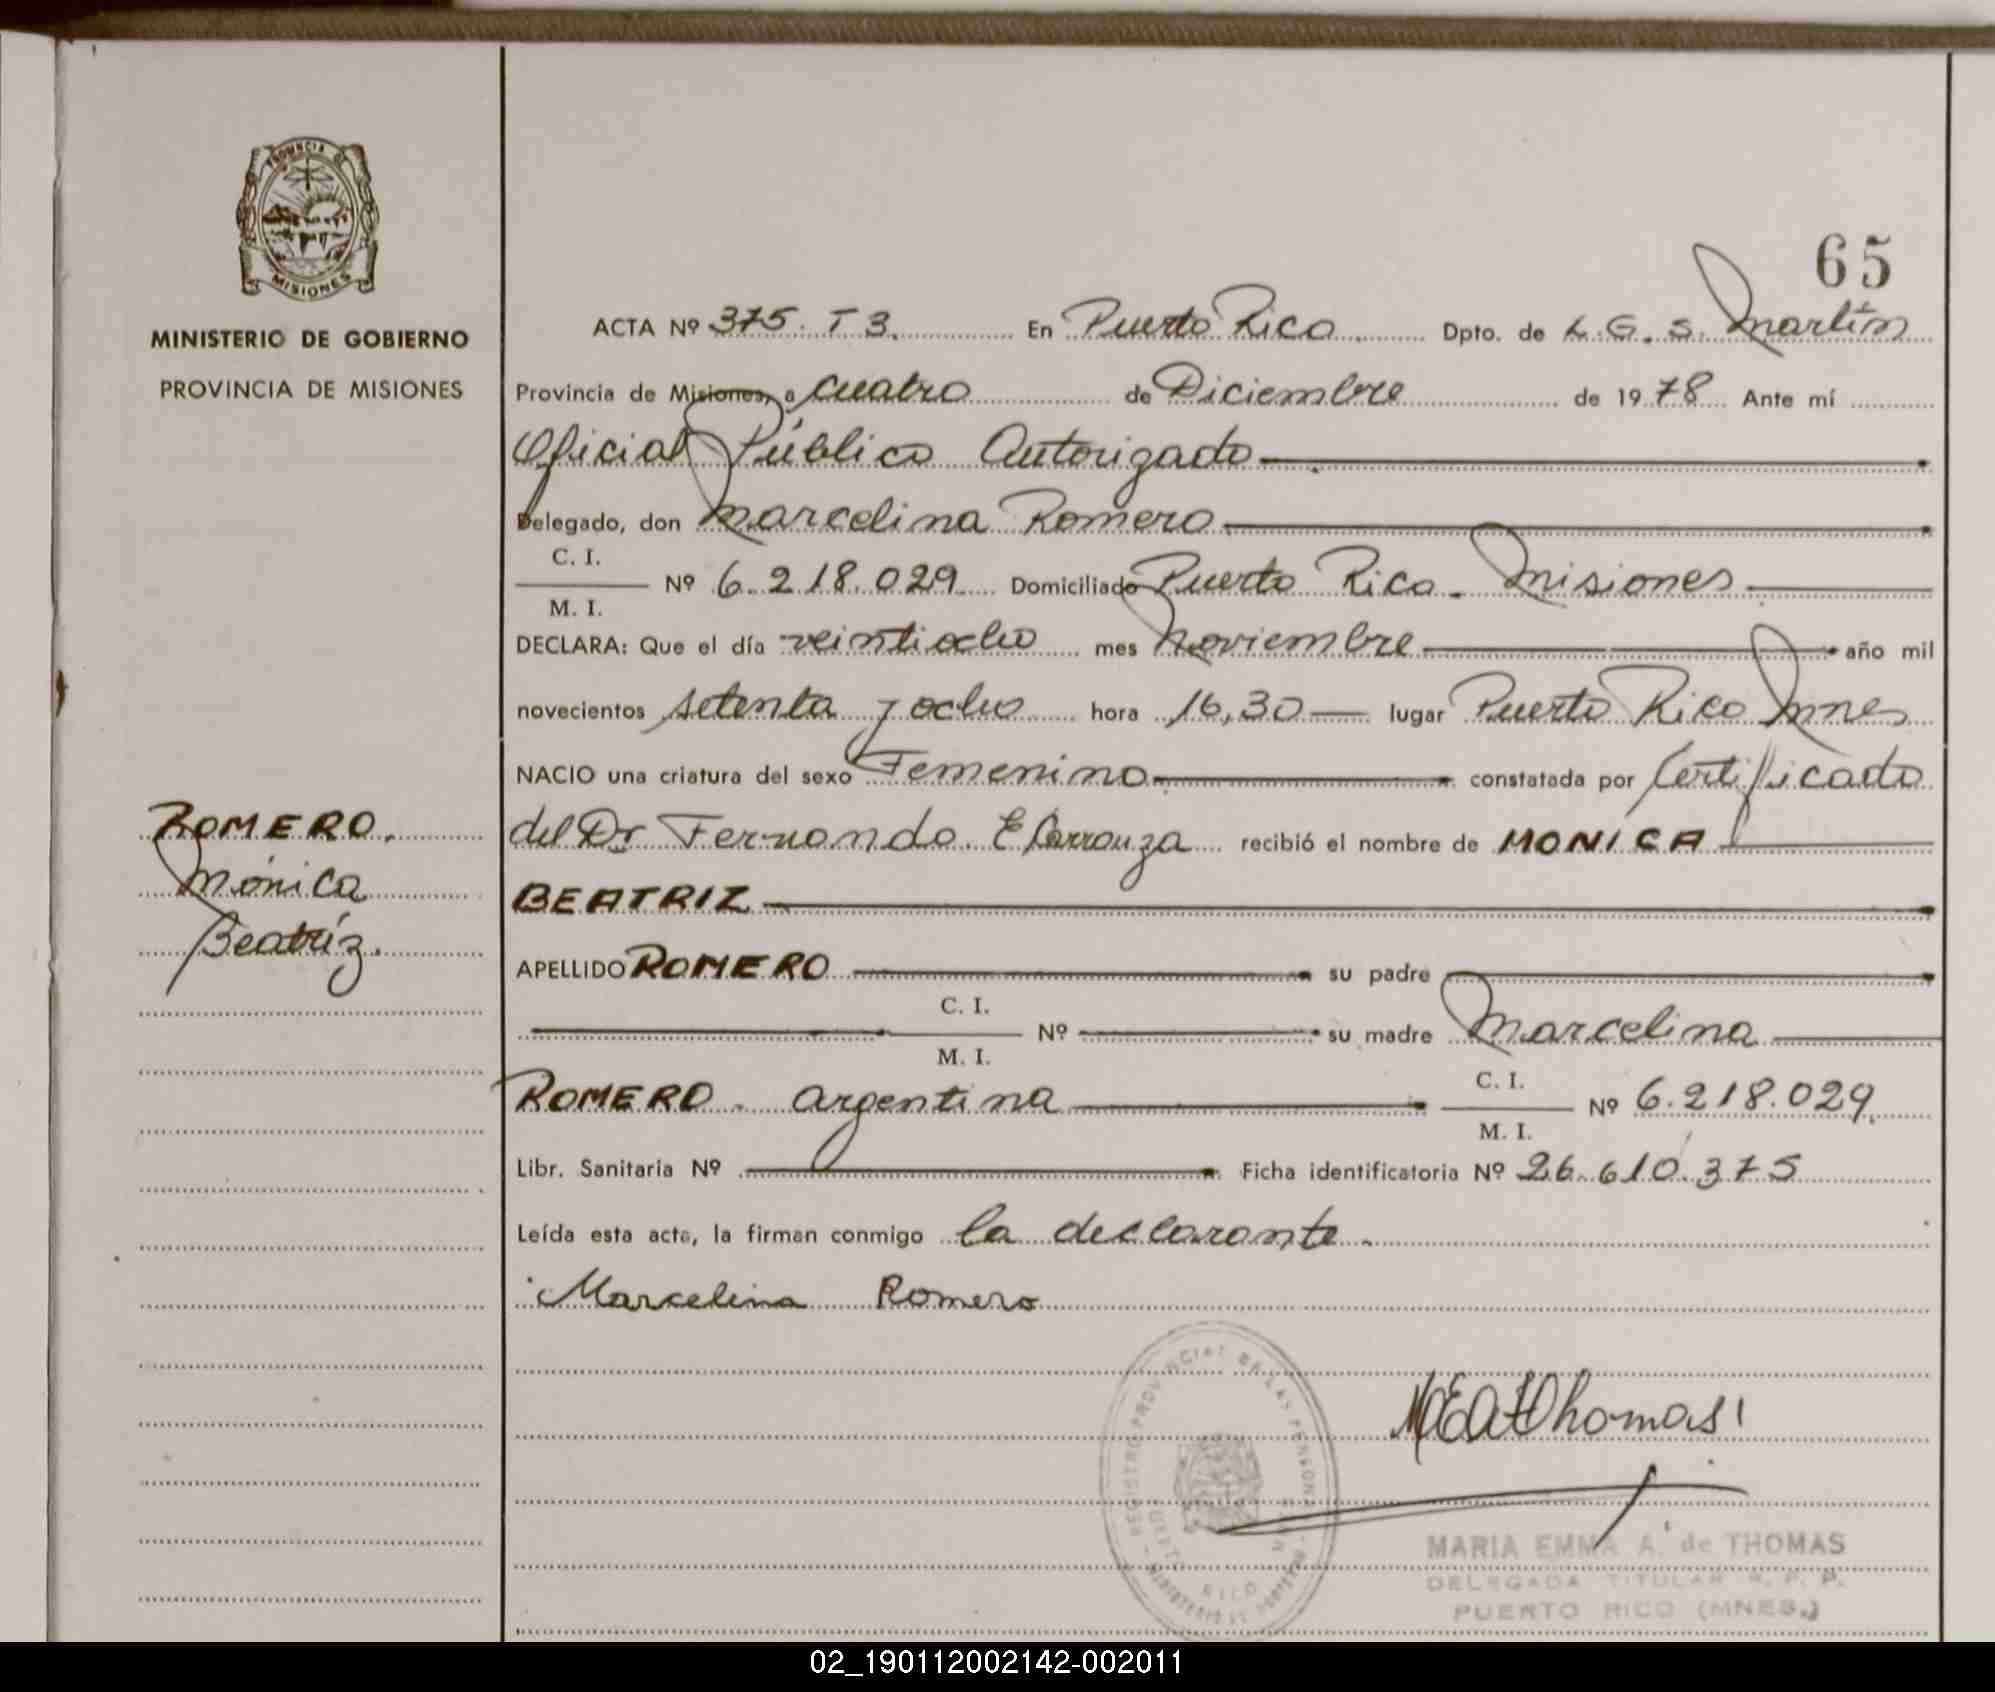 65
PROVINCIA DE
MISIONES
MINISTERIO DE GOBIERNO
PROVINCIA DE MISIONES
ROMERO,
Mónica
Beatríz.
ACTA Nº 375. T 3. En Puerto Rico Dpto. de L. G. S. Martín
Provincia de Misiones, a cuatro de Diciembre de 1978 Ante mí
Oficial Público Autorizado
Delegado, don Marcelina Romero
C. I.
Nº 6.218.029 Domiciliado Puerto Rico - Misiones
M. I.
DECLARA: Que el día veintiocho mes Noviembre año mil
novecientos setenta y ocho hora 16,30 lugar Puerto Rico Mnes
NACIO una criatura del sexo Femenino constatada por Certificado
del Dr Fernando E Carranza recibió el nombre de MONICA
BEATRIZ
APELLIDO ROMERO su padre
C. I.
Nº su madre Marcelina
M. I.
ROMERO - argentina C. I. Nº 6.218.029.
M. I.
Libr. Sanitaria Nº Ficha identificatoria Nº 26.610.375
Leída esta acta, la firman conmigo la declarante.
Marcelina Romero
MEAThomas
REGISTRO PROVINCIAL DE LAS PERSONAS
PUERTO RICO
MARIA EMMA A. de THOMAS
DELEGADA TITULAR R. P. P.
PUERTO RICO (MNES.)
02_190112002142-002011